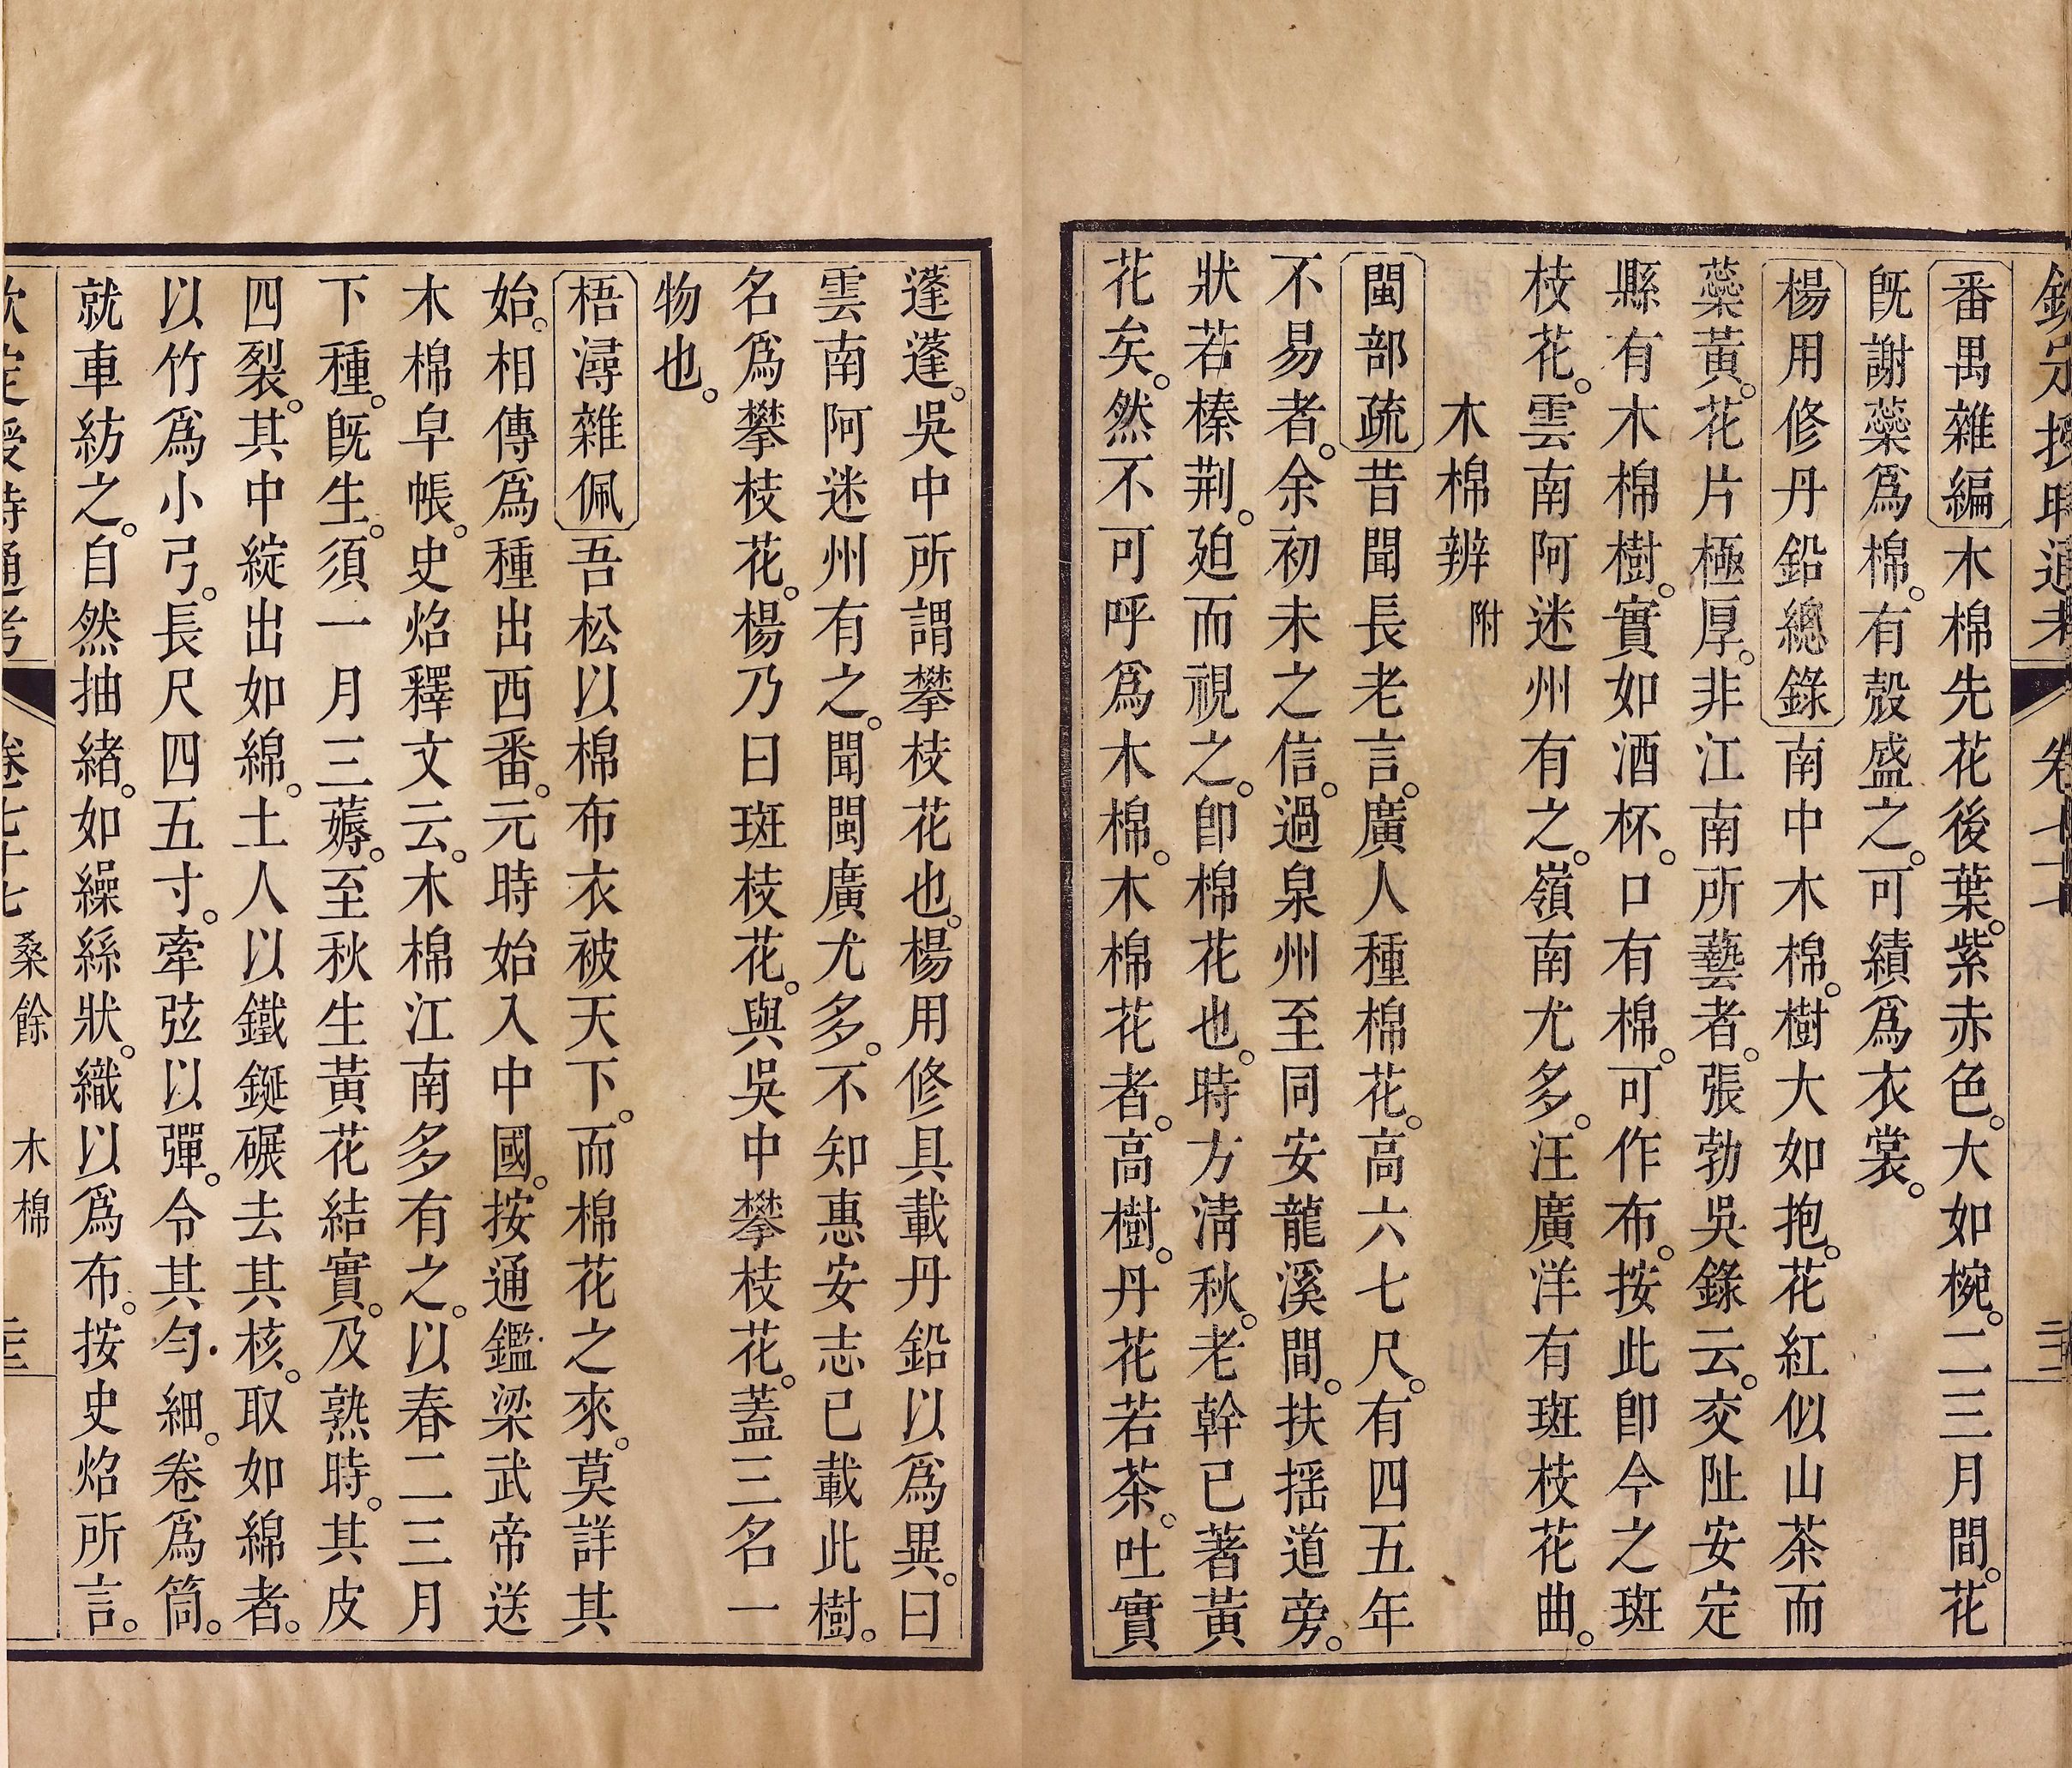 欽定授時通考 卷七十七
番禺雜編木棉先花後葉。紫赤色。大如椀。二三月間。花
旣謝蘂爲棉。有殼盛之。可績爲衣裳。
楊用修丹鉛總錄南中木棉。樹大如抱。花紅似山茶而
蘂黃。花片極厚。非江南所藝者。張勃吳錄云。交阯安定
縣有木棉樹。實如酒杯。口有棉。可作布。按此卽今之斑
枝花。雲南阿迷州有之。嶺南尤多。汪廣洋有斑枝花曲。
木棉辨 附
閩部疏昔聞長老言。廣人種棉花。高六七尺。有四五年
不易者。余初未之信。過泉州至同安龍溪間。扶揺道旁。
狀若榛荆。廹而視之。卽棉花也。時方淸秋。老幹已著黃
花矣。然不可呼爲木棉。木棉花者。高樹。丹花若茶。吐實
蓬蓬。吳中所謂攀枝花也。楊用修具載丹鉛以爲異。曰
雲南阿迷州有之。聞閩廣尤多。不知惠安志已載此樹。
名爲攀枝花。楊乃曰斑枝花。與吳中攀枝花。蓋三名一
物也。
梧潯雜佩吾松以棉布衣被天下。而棉花之來。莫詳其
始。相傳爲種出西番。元時始入中國。按通鑑梁武帝送
木棉皁帳。史炤釋文云。木棉江南多有之。以春二三月
下種。旣生。須一月三薅。至秋生黃花結實。及熟時。其皮
四裂。其中綻出如綿。土人以鐵鋌碾去其核。取如綿者。
以竹爲小弓。長尺四五寸。牽弦以彈。令其勻細。卷爲筒。
就車紡之。自然抽緒。如繰絲狀。織以爲布。按史炤所言。
欽定授時通考 卷七十七 桑餘 木棉